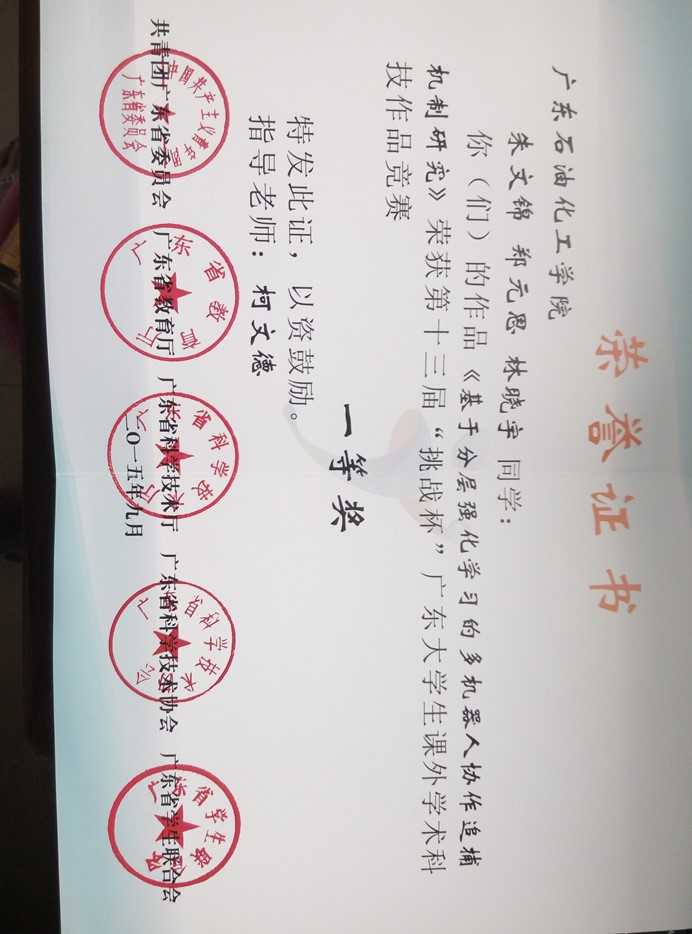 荣誉证书
广东石油化工学院
朱文锦 郑元恩 林晓宇 同学：
你（们）的作品《基于分层强化学习的多机器人协作追捕
机制研究》荣获第十三届“挑战杯”广东大学生课外学术科
技作品竞赛
一等奖
特发此证，以资鼓励。
指导老师：柯文德
共青团广东省委员会 广东省教育厅 广东省科学技术厅 广东省科学技术协会 广东省学生联合会
二〇一五年九月
广东省委员会